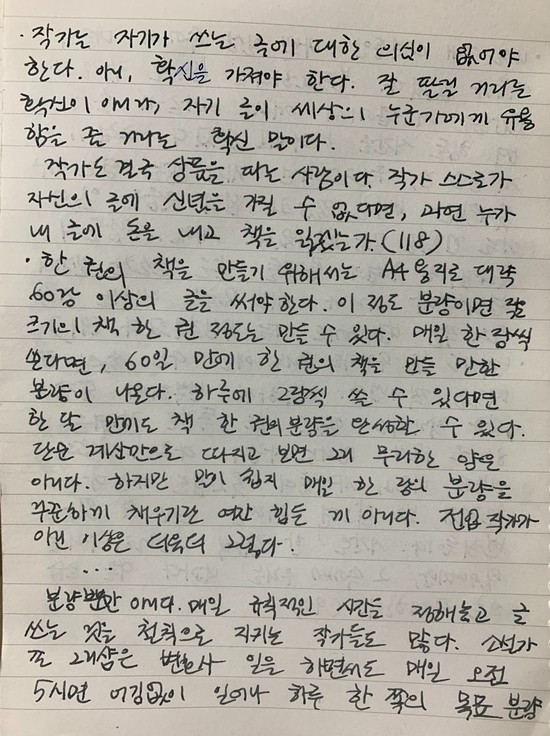 · 작가는 자기가 쓰는 글에 대한 의심이 없어야
한다. 아니, 확신을 가져야 한다. 잘 팔릴 거라는
확신이 아니라, 자기 글이 세상의 누군가에게 유용
함을 줄 거라는 확신 말이다.
작가도 결국 상품을 파는 사람이다. 작가 스스로가
자신의 글에 신념을 가질 수 없다면, 과연 누가
내 글에 돈을 내고 책을 읽겠는가. (118)
· 한 권의 책을 만들기 위해서는 A4용지로 대략
60장 이상의 글을 써야한다. 이 정도 분량이면 작은
크기의 책 한 권 정도는 만들 수 있다. 매일 한 장씩
쓴다면, 60일 만에 한 권의 책을 만들 만한
분량이 나온다. 하루에 2장씩 쓸 수 있다면
한 달 만에도 책 한 권의 분량을 완성할 수 있다.
단순 계산만으로 따지고 보면 그리 무리한 양은
아니다. 하지만 말이 쉽지 매일 한 장의 분량을
꾸준하게 채우기란 여간 힘든 게 아니다. 전업 작가가
아닌 이상은 더욱더 그렇다.
...
분량뿐만 아니다. 매일 규칙적인 시간을 정해놓고 글
쓰는 것을 철칙으로 지키는 작가들도 많다. 소설가
존 그리샴은 변호사 일을 하면서도 매일 오전
5시면 어김없이 일어나 하루 한 쪽의 목표 분량